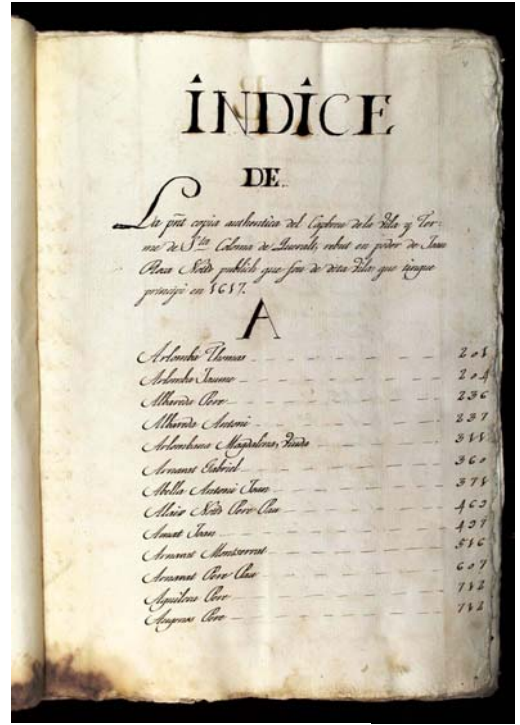 ÍNDÍCE
DE
La pnt copia authentica del Capbreu de la Vila y Ter-
me de Sta Coloma de Queralt, rebut en poder de Juan
Roca Notô publich que fou de dita Vila, que tingue
principi en 1617.
A
Arlomba Thomas 201
Arlomba Jaume 204
Albareda Pere 236
Albareda Antoni 237
Arlombana Magdalena, Viuda 311
Armanat Gabriel 360
Abella Antoni Juan 371
Notô Pere Pau 463
Amat Juan
Armanat Montserrat 516
Armanat Pere Pau 607
Aguilona Pere 712
Pere 712